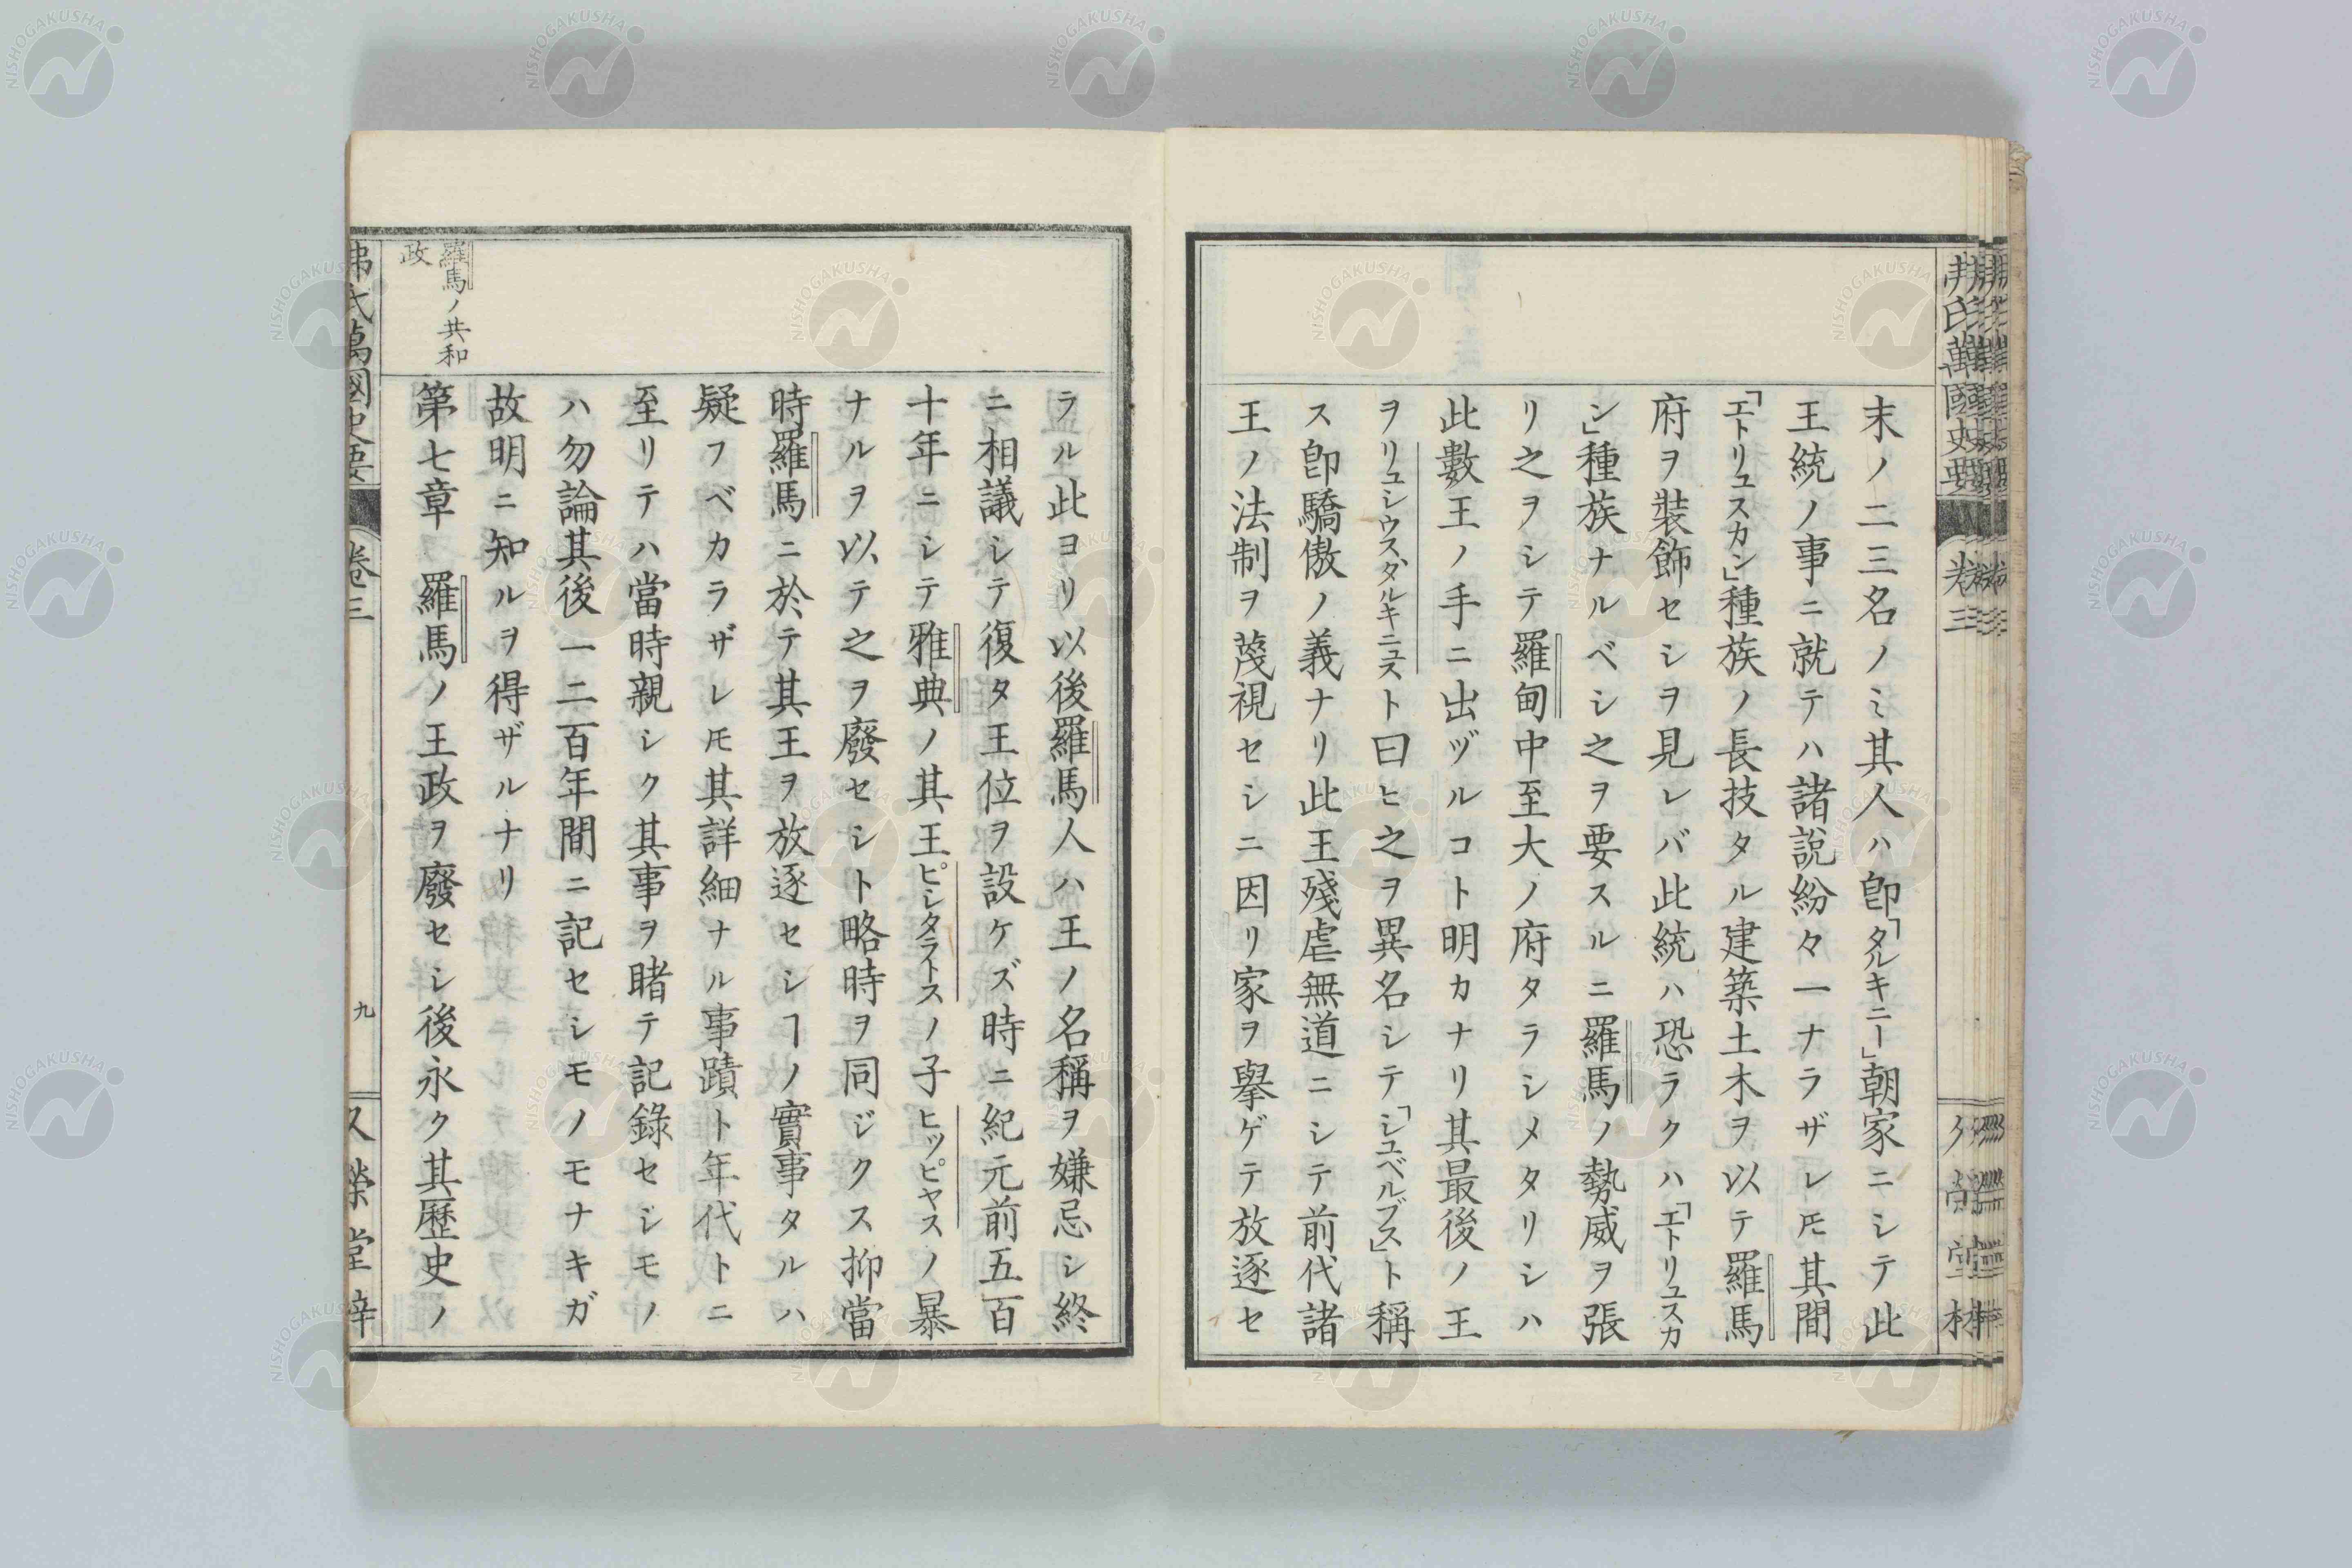 末ノ二三名ノミ其人ハ卽「タルキニー」朝家ニシテ此
王統ノ事ニ就テハ諸說紛々一ナラザレ𪜈其間
「エトリュスカン」種族ノ長技タル建築土木ヲ以テ羅馬
府ヲ裝飾セシヲ見レバ此統ハ恐ラクハ「エトリュスカ
ン」種族ナルベシ之ヲ要スルニ羅馬ノ勢威ヲ張
リ之ヲシテ羅甸中至大ノ府タラシメタリシハ
此數王ノ手ニ出ヅルコト明カナリ其最後ノ王
ヲリュシウス、タルキニュスト曰ヒ之ヲ異名シテ「シユベルブス」ト稱
ス卽驕傲ノ義ナリ此王殘虐無道ニシテ前代諸
王ノ法制ヲ蔑視セシニ因リ家ヲ擧ゲテ放逐セ
ラル此ヨリ以後羅馬人ハ王ノ名稱ヲ嫌忌シ終
ニ相議シテ復タ王位ヲ設ケズ時ニ紀元前五百
十年ニシテ雅典ノ其王ピシタラトスノ子ヒッピヤスノ暴
ナルヲ以テ之ヲ廢セシト略時ヲ同ジクス抑當
時羅馬ニ於テ其王ヲ放逐セシヿノ實事タルハ
疑フベカラザレ𪜈其詳細ナル事蹟ト年代トニ
至リテハ當時親シク其事ヲ睹テ記錄セシモノ
ハ勿論其後一二百年間ニ記セシモノモナキガ
故明ニ知ルヲ得ザルナリ
羅馬ノ共和
政
第七章 羅馬ノ王政ヲ廢セシ後永ク其歷史ノ
弗氏萬國史要 卷三 九